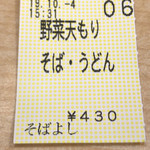 19.10.-4
15:31
06
野菜天もり
そば・うどん
¥430
そばよし